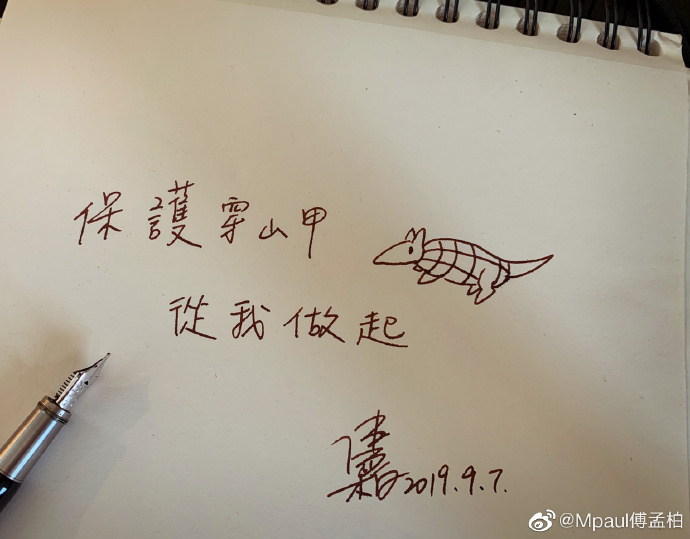 保護穿山甲
從我做起
2019.9.7.
@Mpaul傅孟柏